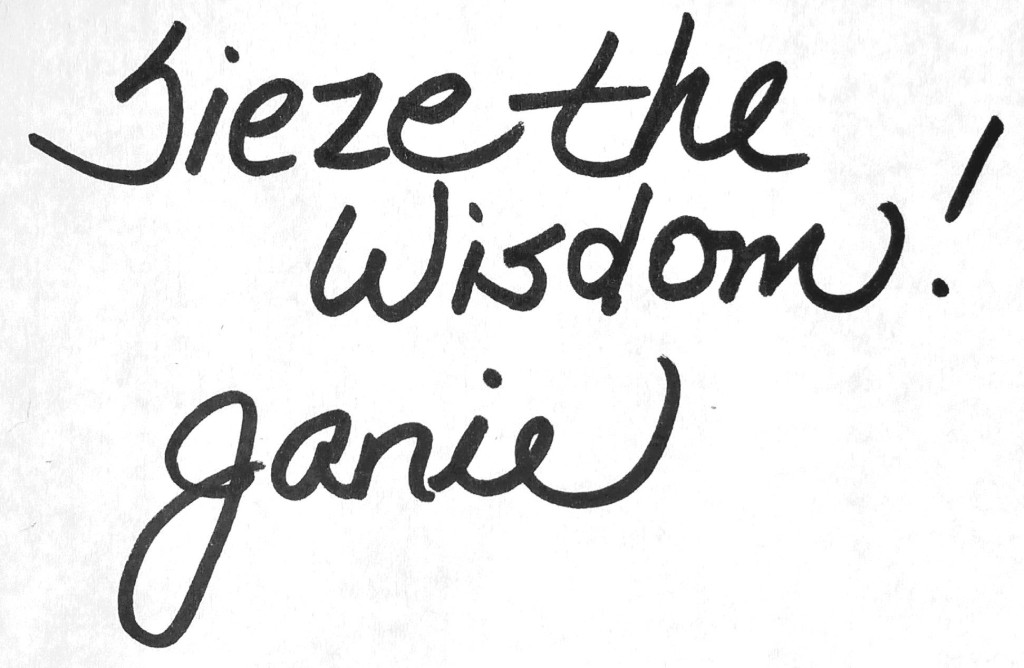 Sieze the
Wisdom!
Janie